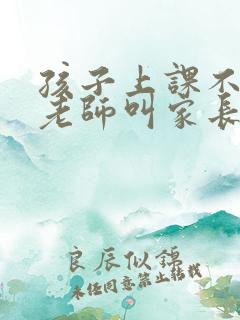 孩子上課不
老師叫家長
良辰似錦
未經同意禁止轉載